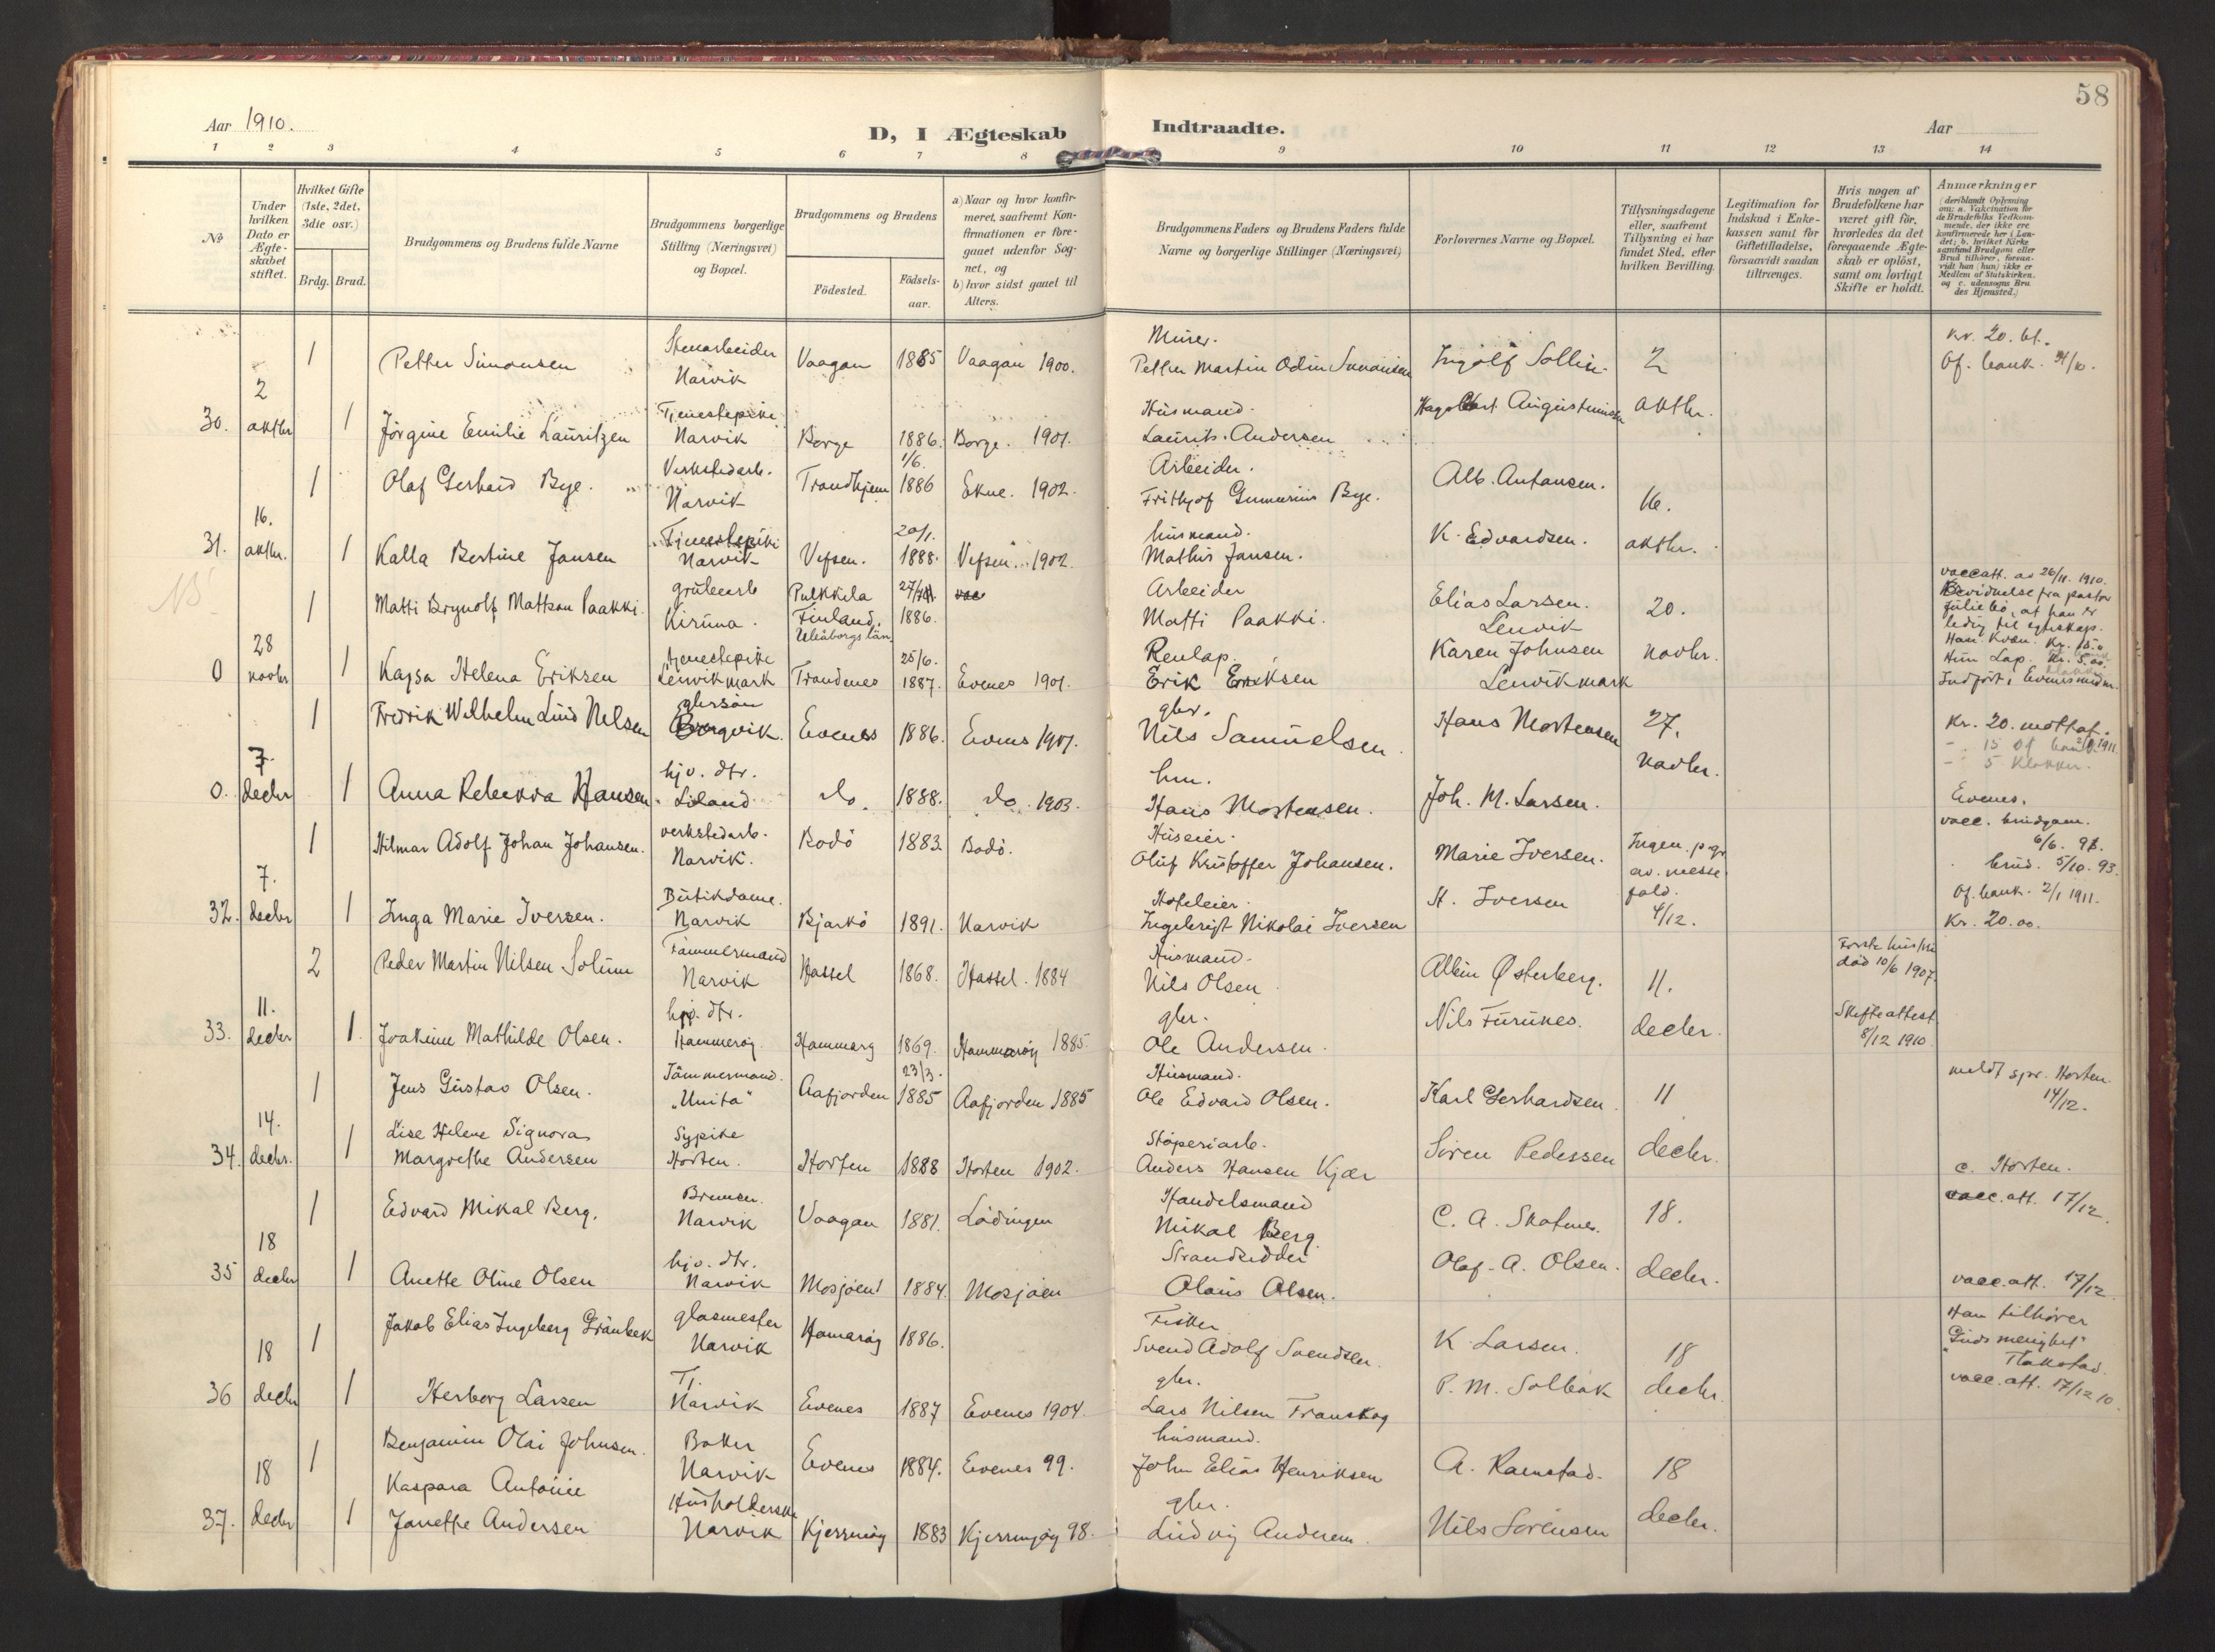 58
Aar 1910.
D, I Ægteskab
Indtraadte.
Aar
1 2 3 4 5 6 7 8 9 10 11 12 13 14
№
Under hvilken Dato er Ægteskabet stiftet.
Hvilket Gifte (1ste, 2det, 3die osv.)
Brdg. Brud.
Brudgommens og Brudens fulde Navne
Brudgommens borgerlige Stilling (Næringsvei) og Bopæl.
Brudgommens og Brudens
Födested.
Födsels-aar.
a) Naar og hvor konfir-
meret, saafremt Kon-
firmationen er fore-
gaaet udenfor Sog-
net, og
b) hvor sidst gaaet til
Alters.
Brudgommens Faders og Brudens Faders fulde
Navne og borgerlige Stillinger (Næringsvei)
Forlovernes Navne og Bopæl.
Tillysningsdagene
eller, saafremt
Tillysning ei har
fundet Sted, efter
hvilken Bevilling.
Legitimation for
Indskud i Enke-
kassen samt for
Giftetilladelse,
forsaavidt saadan
tiltrænges.
Hvis nogen af
Brudefolkene har
været gift før,
hvorledes da det
foregaaende Ægte-
skab er oplöst,
samt om lovligt
Skifte er holdt.
Anmærkninger
(deriblandt Oplysning
om: a. Vakcination for
de Brudefolks Vedkom-
mende, der ikke ere
konfirmerede her i Lan-
det; b. hvilket Kirke-
samfund Brudgom eller
Brud tilhörer, forsaa-
vidt han (hun) ikke er
Medlem af Statskirken,
og c. udensogns Bru-
des Hjemsted.)
Stenarbeider Murer. kr. 20. bt.
1 Petter Simonsen Narvik Vaagan 1885 Vaagan 1900. Petter Martin Odin Simonsen Ingolf Sollin 2 Of. bank.
2 Tjenestepike Husmand. Augustinusen oktbr.
30. oktbr 1 Jörgine Emilie Lauritzen Narvik Borge 1886. Borge. 1901. Laurits Andersen
Verkstedarb. 1/6. Arbeider.
1 Olaf Gerhard Bye. Narvik Trondhjem 1886 Ekne. 1902. Frithjof Gunnerius Bye. Alb. Antonsen. 16.
16. Tjenestepike 20/1. husmand.
31. oktbr. 1 Kalla Bertine Jansen Narvik Vefsen. 1888. Vefsen. 1902. Mathis Jansen. K. Edvardsen. oktbr.
NB grubearb Pulkkila Arbeider vaccatt. av 26/11. 1910.
1 Matti Brynolf Mattson Paakki. Kiruna. Finland. Uleåborgs län 1886. Matti Paakki. Elias Larsen. Lenvik 20. Bevidnelse fra pastor
at han er
ledig til egteskap.
28 tjenestepike 25/6. Renlap. Han. Kvæn. Kr. 15.
0 novbr 1 Kajsa Helena Eriksen Lenvikmark Trondenes 1887. Evenes 1901. Erik Eriksen Karen Johnsen Lenvikmark novbr. Hun Lap. Kr. 5.00.
Indfört i Evenes
glersön gbr.
1 Fredrik Wilhelm Lind Nilsen Bergvik. Evenes 1886. Evenes 1901. Nils Samuelsen Hans Mortensen 27. Kr. 20. mottat.
15 Of bank 1911.
7. hjv. dtr. hm. novbr. 5 Klokker.
0. decbr 1 Anna Rebekka Hansen. Liland do. 1888. do. 1903. Hans Mortensen. Joh. M. Larsen. Evenes.
verkstedarb. Huseier. Ingen p gr vacc. brudgom.
1 Hilmar Adolf Johan Johansen. Narvik. Bodö 1883 Bodö. Oluf Kristoffer Johansen. Marie Iversen. av. messe 6/6.
brud. 5/10. 93.
7. Butikdame. Hoteleier. fald. Of. bank. 2/1 1911.
32. decbr 1 Inga Marie Iversen. Narvik Bjarkö 1891. Narvik Ingebrigt Nikolai Iversen H. Iversen 4/12. Kr. 20.00.
Tömmermand Husmand. Förste hustru
2 Peder Martin Nilsen Solum Narvik Hassel 1868. Hassel. 1884 Nils Olsen Albin Østerberg. 11. död 10/6 1907.
11. hjv. dtr. gbr. Skifteattest
33. decbr 1. Joakine Mathilde Olsen. Hammeröy. Hammeröy 1869. Hammeröy 1885. Ole Andersen. Nils Furunes. decbr. 8/12 1910.
Tömmermand. 23/3. Husmand. meldt spr. Horten.
1 Jens Gustav Olsen. "Unita" Aafjorden 1885 Aafjorden 1885 Ole Edvard Olsen. Karl Gerhardsen 11 14/12.
14. Lise Helene Signora Sypike Støperiarb.
34. decbr. 1 Margrethe Andersen Horten. Horten 1888 Horten 1902. Anders Hansen Kjær Sören Pedersen decbr. c. Horten.
Bremser. Handelsmand vacc. att. 17/12.
1 Edvard Mikal Berg. Narvik Vaagan 1881. Lödingen Mikal Berg. C. A. Skotnes. 18.
18 hjv. dtr. Strandsidder
35 decbr 1 Anette Oline Olsen Narvik Mosjöen 1884. Mosjöen Olaus Olsen. Olaf A. Olsen. decbr. vacc. att. 17/12
glasmester Fisker Han tilhörer
1 Jakob Elias Ingeberg Grönbek Narvik Hamaröy 1886. Svend Adolf Svendsen. K. Larsen. 18 "Guds menighet"
Flakstad.
18 Tj. gbr. vacc. att. 17/12 10.
36 decbr 1 Herborg Larsen Narvik Evenes 1887 Evenes 1904. Lars Nilsen Franskog P. M. Solbak decbr.
Baker husmand.
1 Benjamin Olai Johnsen. Narvik Evenes 1884. Evenes 99. John Elias Henriksen A. Ramstad. 18
18 Kaspara Antonie Husholderske gbr.
37. decbr 1 Janethe Andersen Narvik Kjerringöy 1883 Kjerringöy 98. Ludvig Andersen. Nils Sörensen decbr.